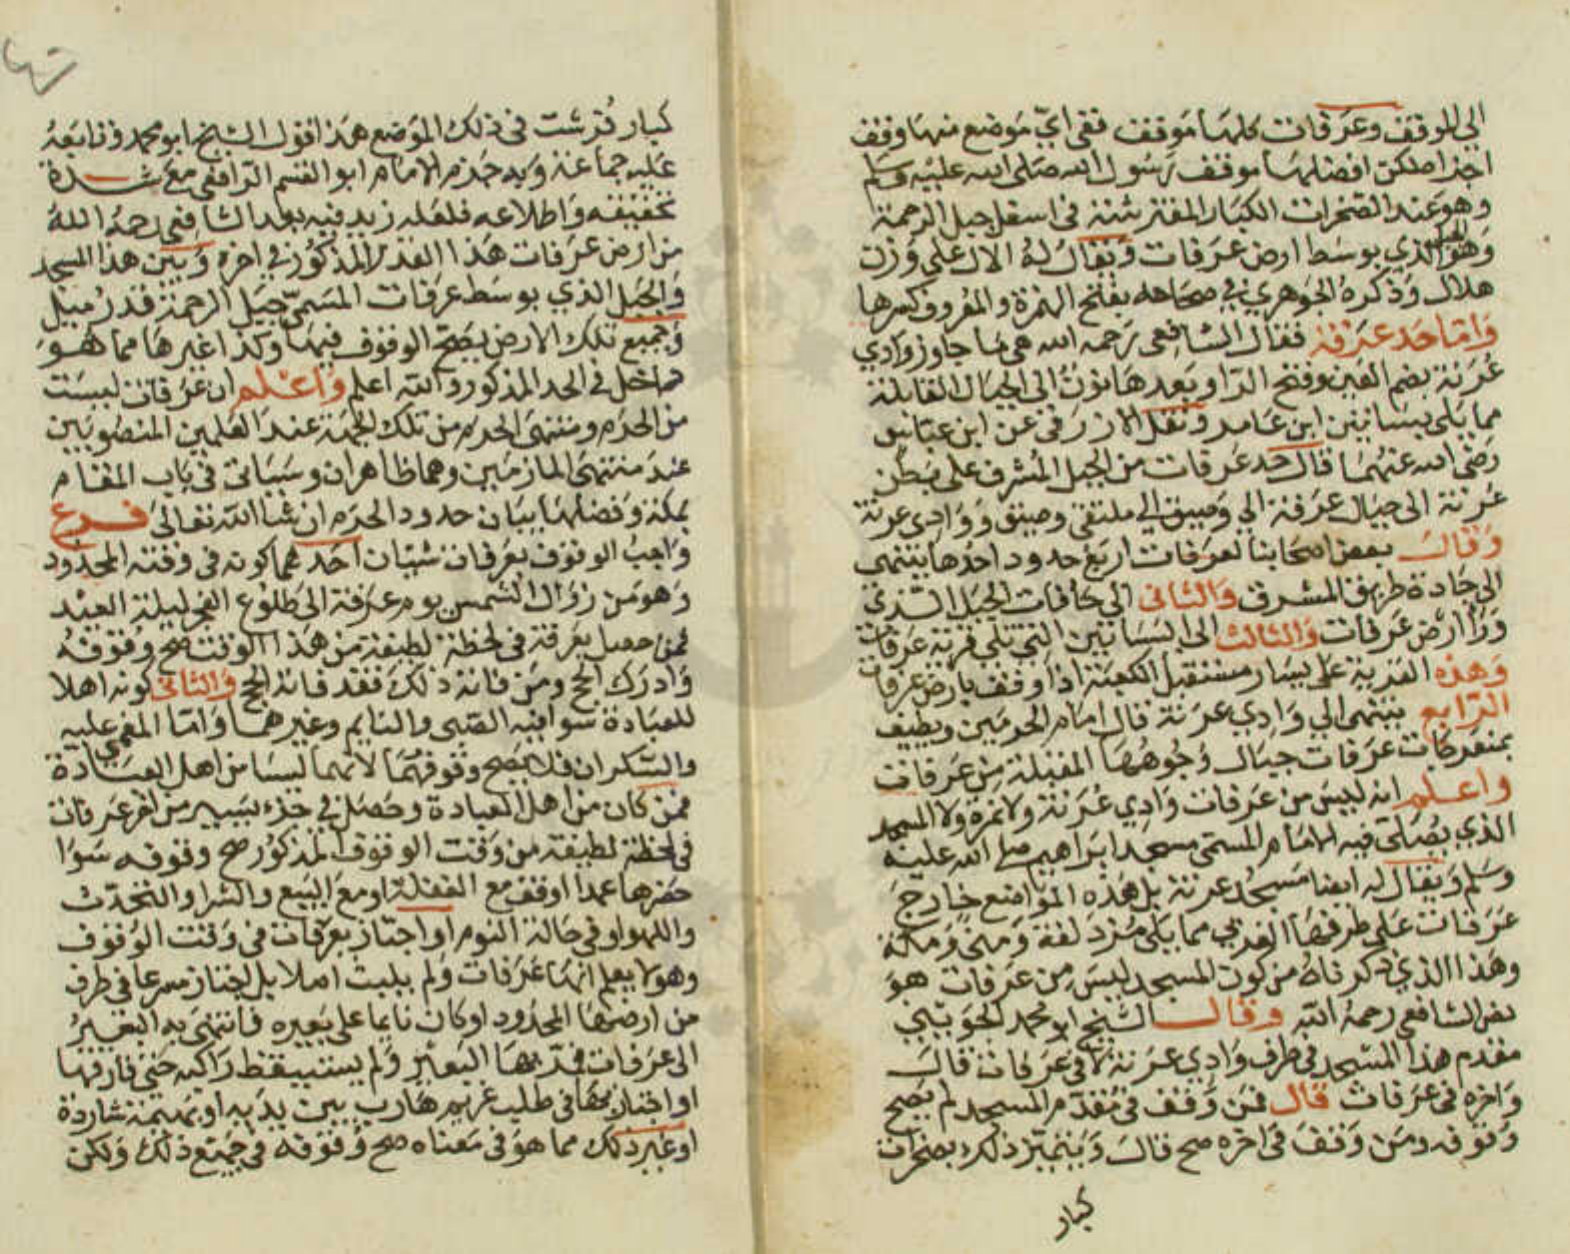 الي للوقف وعرفات كلها موقف ففي اي موضع منها وقف
اجزاه لكن افضلها موقف رسول الله صلى الله عليه وسلم
وهو عند الصخرات الكبار المفترشة في اسفل جبل الرحمة
وهو الجبل الذي بوسط ارض عرفات ويقال له الال على وزن
هلال وذكره الجوهري في صحاحه بفتح الهمزة والمعروف كسرها
واما حد عرفة فقال الشافعي رحمه الله هي ما جاوز وادي
عرنة بضم العين وفتح الرا وبعدها نون الى الجبال القابلة
مما يلي بساتين ابن عامر ونقل الازرقي عن ابن عباس
رضى الله عنهما قال حد عرفات من الجبل المشرف على بطن
عرنة الى جبال عرفة الي وصيق الي ملتقى وصيق ووادى عرنة
وقال بعض اصحابنا لعرفات اربع حدود احدها ينتهي
الى جادة طريق المشرق والثانى الي حافات الجبل الذي
ورأ ارض عرفات والثالث الى البساتين التي تلي قرية عرفات
وهذه القرية على يسار مستقبل الكعبة اذا وقف بارض عرفات
الرابع ينتهى الي وادي عرنة قال امام الحرمين ويطيف
بمنعرجات عرفات جبال وجوهها المقبلة من عرفات
واعلم انه ليس من عرفات وادي عرنة ولا نمرة ولا المسجد
الذي يصلى فيه الامام المسمى مسجد ابراهيم صلى الله عليه
وسلم ويقال له ايضا مسجد عرنة بل هذه المواضع خارج
عرفات على طرفها الغربي مما يلي مزدلفة ومنى ومكة
وهذا الذي ذكرناه من كون المسجد ليس من عرفات هو
نص الشافعي رحمه الله وقال الشيخ ابو محمد الجويني
مقدم هذا المسجد في طرف وادي عرنة لا في عرفات قال
واخره في عرفات قال فمن وقف في مقدم المسجد لم يصح
وقوفه ومن وقف في اخره صح قال ويتميز ذلك بصخرات
كبار
كبار فرشت في ذلك الموضع هذا قول الشيخ ابو محمد وتابعه
عليه جماعة وبه جزم الامام ابو القسم الرافعي مع شدة
تحقيقه واطلاعه فلعله زيد فيه بعد الشافعي رحمه الله
من ارض عرفات هذا القدر المذكور في اخره وبين هذا المسجد
والجبل الذي بوسط عرفات المسمى جبل الرحمة قدر ميل
وجميع تلك الارض يصح الوقوف فيها وكذا غيرها مما هو
داخل في الحد المذكور والله اعلم واعلم ان عرفات ليست
من الحرم ومنتهى الحرم من تلك الجهة عند العلمين المنصوبين
عند منتهى المازمين وهما ظاهران وسياتى في باب المقام
بمكة وفضلها بيان حدود الحرم ان شا الله تعالى فرع
واجب الوقوف بعرفات شيئان احدهما كونه في وقته المحدود
وهو من زوال الشمس يوم عرفة الى طلوع الفجر ليلة العيد
فمن حصل بعرفة في لحظة لطيفة من هذا الوقت صح وقوفه
وادرك الحج ومن فاته ذلك فقد فاته الحج والثانى كونه اهلا
للعبادة سوا فيه الصبى والنايم وغيرهما واما المغمى عليه
والسكران فلا يصح وقوفهما لانهما ليسا من اهل العبادة
فمن كان من اهل العبادة وحصل في جزء يسير من اجزا عرفات
في لحظة لطيفة من وقت الوقوف المذكور صح وقوفه سوا
حضرها عمدا او وقف مع الغفلة او مع البيع والشرا والتحدث
واللهو او في حالة النوم او اجتاز بعرفات في وقت الوقوف
وهو لا يعلم انها عرفات ولم يلبث اصلا بل اجتاز مسرعا في طرف
من ارضها المحدود او كان نايما على بعيره فانتهى به البعير
الى عرفات فمر بها البعير ولم يستيقظ راكبه حتى فارقها
او اجتازها في طلب غريم هارب بين يديه او بهيمة شاردة
او غير ذلك مما هو في معناه صح وقوفه في جميع ذلك ولكن